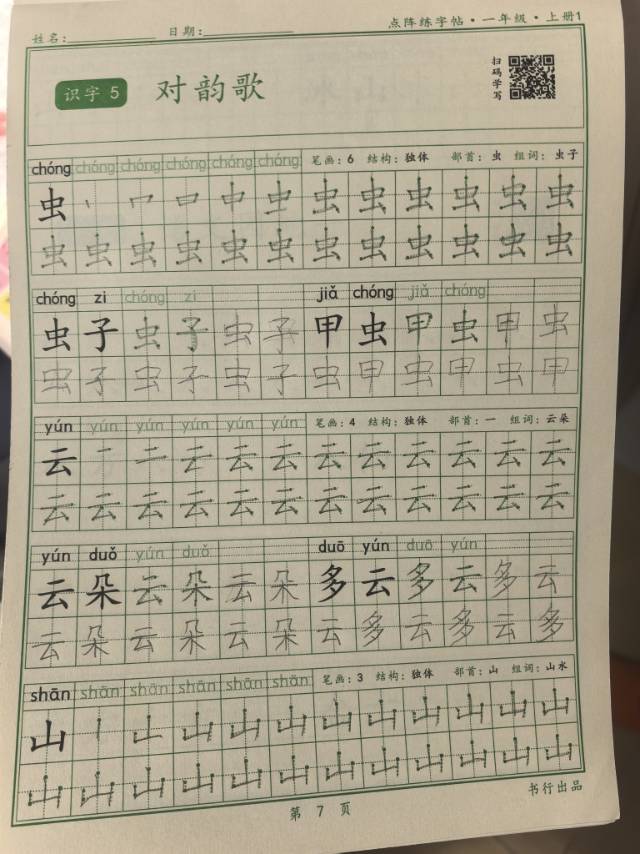 姓名：
日期：
点阵练字帖·一年级·上册1
识字 5 对韵歌 扫码学写
chóng chóng chóng chóng chóng chóng 笔画：6 结构：独体 部首：虫 组词：虫子
虫 丶 口 口 中 虫 虫 虫 虫 虫 虫 虫
虫 虫 虫 虫 虫 虫 虫 虫 虫 虫 虫 虫
chóng zi chóng zi jiǎ chóng jiǎ chóng
虫 子 虫 子 虫 子 甲 虫 甲 虫 甲 虫
虫 子 虫 子 虫 子 虫 甲 虫 甲 虫 甲
yún yún yún yún yún yún 笔画：4 结构：独体 部首：一 组词：云朵
云 一 二 云 云 云 云 云 云 云 云 云
云 云 云 云 云 云 云 云 云 云 云 云
yún duǒ yún duǒ duō yún duō yún
云 朵 云 朵 云 朵 多 云 多 云 多 云
云 朵 云 朵 云 朵 云 多 云 多 云 多
shān shān shān shān shān shān 笔画：3 结构：独体 部首：山 组词：山水
山 丨 山 山 山 山 山 山 山 山 山
山 山 山 山 山 山 山 山 山 山 山 山
第 7 页
书行出品